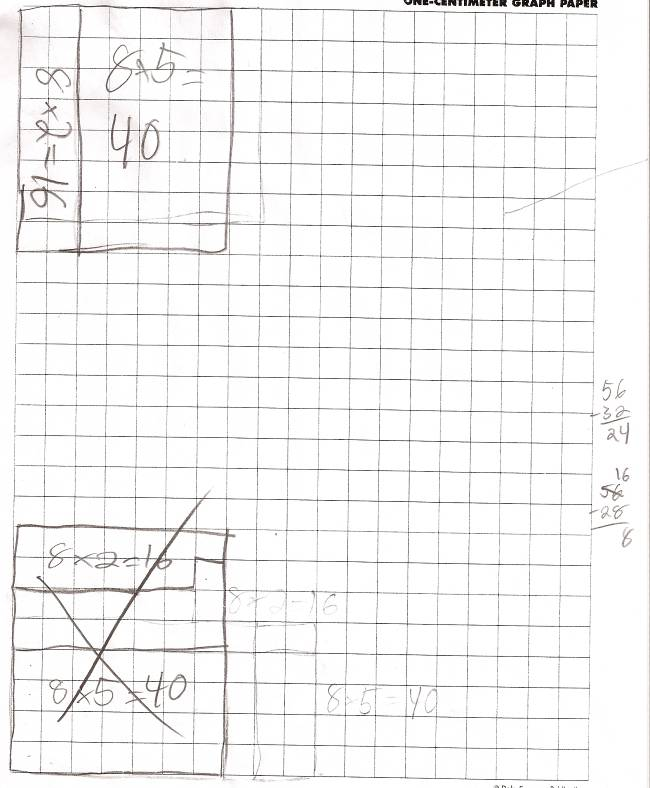 ONE-CENTIMETER GRAPH PAPER
8×2=16
8×5=
40
56
-32
24
16
56
-28
8
8×2=16
8×2=16
8×5=40
8×5=40